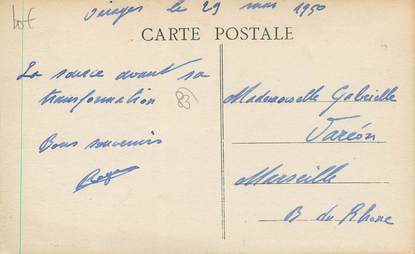 le 29 mai 1950
Lot
CARTE POSTALE
La source avant sa
transformation
(83)
Bons souvenirs
Mademoiselle Gabrielle
Varéon
Marseille
B du Rhone